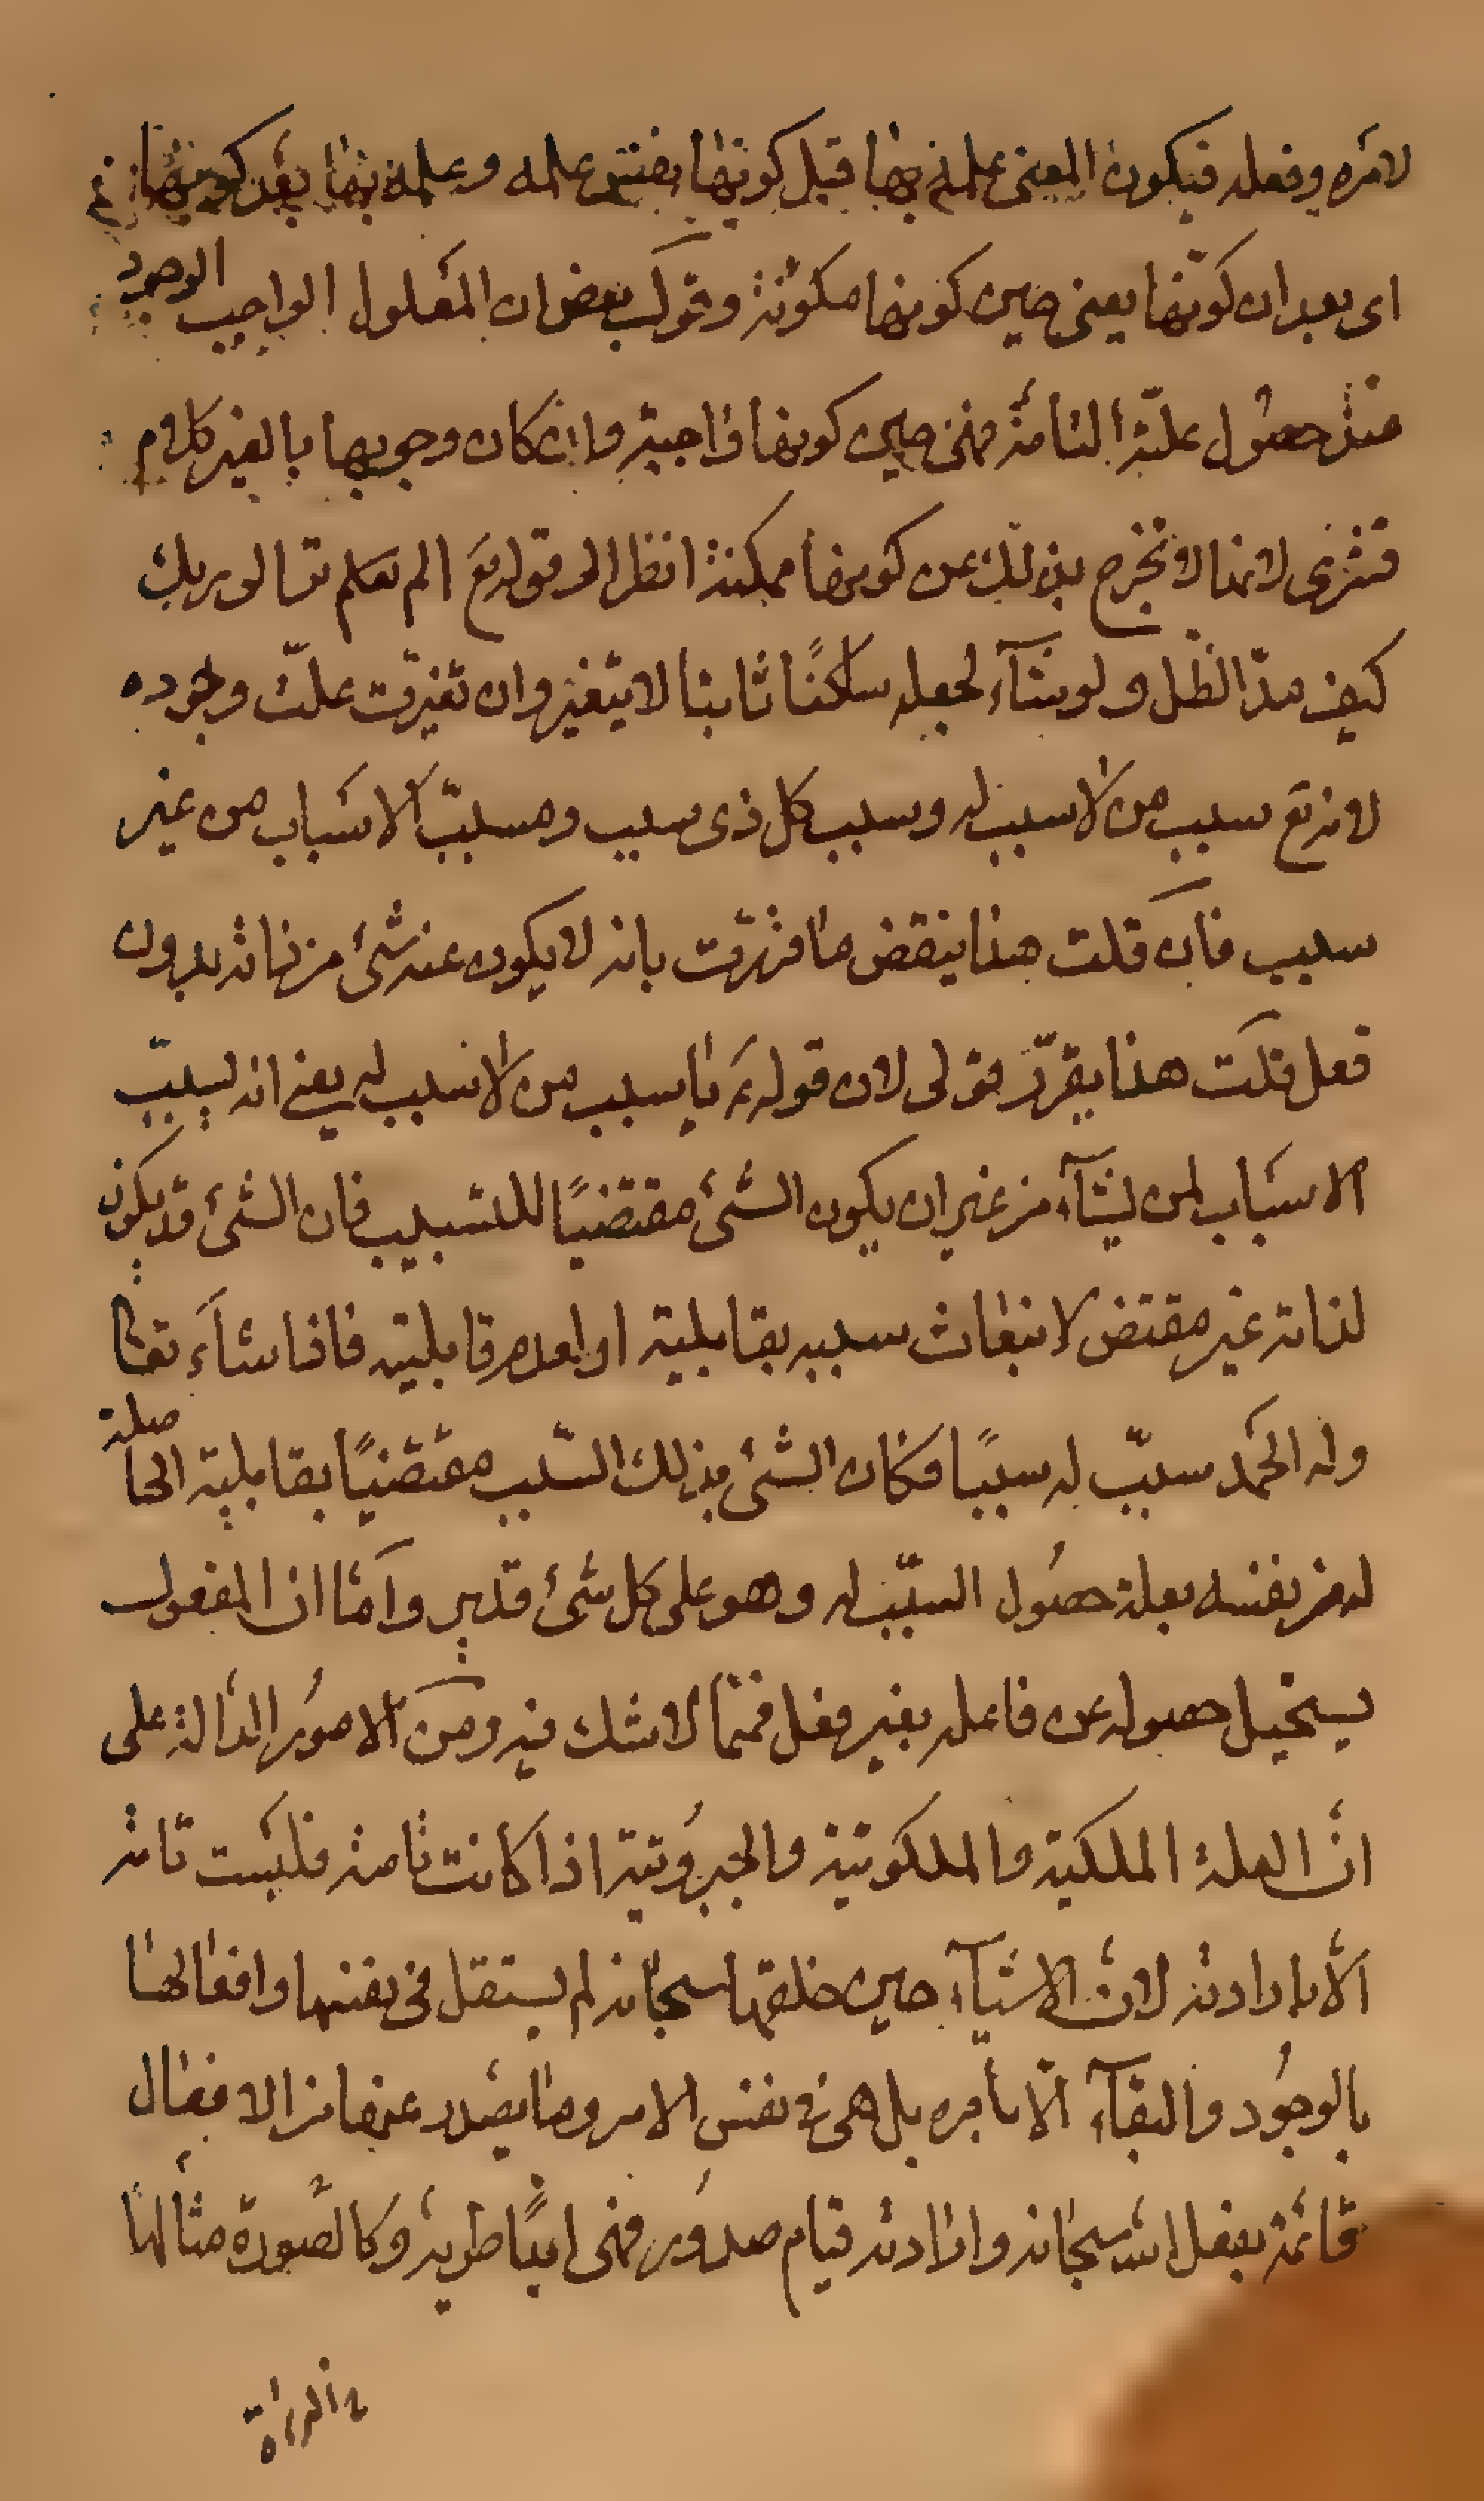 لامره وفعله فيكون المعنى علمه بها قبل كونها بنفس علمه وعلمه بها بعد كونها
اى بعد ان كوّنها يعنى حين كونها مكونة وقول بعض ان المعلول الواجب الوجود
عند حصول علّته التامة فهى حين كونها واجبة وان كان وجوبها بالغير كلام
قشرى لانها لا تخرج بذلك عن كونها ممكنة انظر الى قوله تع الم تعلم تر الى ربك
كيف مدّ الظل ولو شآء لجعله ساكنًا ثابتا لا يتغير وان تغيرت علّت وجوده
لانه تع سبب من لا سبب له وسبب كل ذى سبب ومسبّب الاسباب من غير
سبب فان قلت هذا ينقض ما قررت بانه لا يكون عنه شئ من ذاته بدون
فعل قلت هذا يقرّر قولى لان قوله ع يا سبب من لا سبب له يعنى انه يسبّب
الاسباب لمن يشآء من غير ان يكون الشئ مقتضيًا للتسبيب فان الشئ قد يكون
لذاته غير مقتض لانبعاث سببه بقابليته او لعدم قابليته فاذا شآء تعالى
وله الحمد سبّب له سببًا فكان الشئ بذلك السّبب مقتضيًا بقابليته الحاصلة
له من نفسه بعلة حصُول السّبب له وهو على كل شئ قدير وامّا ان المفعول
يستحيل حصوله عن فاعله بغير فعل فمما لا شك فيه ومن الامور الدالة على
انّ العلة الملكية والملكوتية والجبروتية اذا كانت تامة فليست تامة
الّا بارادته لانّ الاشيآء حين خلقها سبحانه لم يستقل فى نفسها وافعالها
بالوجُود والبقآء الّا بامره بل هى فى نفس الامر وما يصدر عنها من الافعال
قائمة بفعل الله سبحانه وارادته قيام صدوُر فهى ابدًا طرية وكالصورة مثالها
فى المرءاة